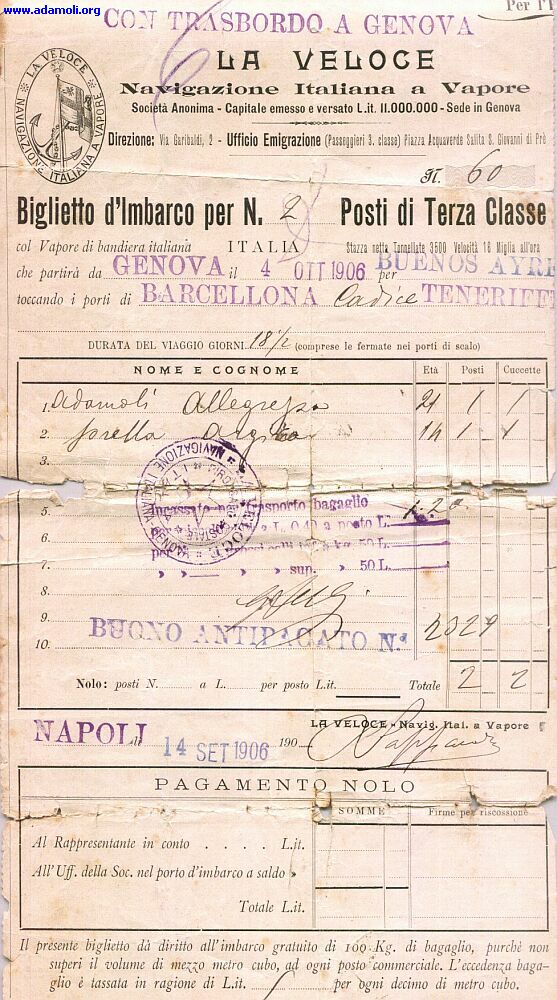 www.adamoli.org
Per l'I
CON TRASBORDO A GENOVA
LA VELOCE
Navigazione Italiana a Vapore
Società Anonima - Capitale emesso e versato L.it. 11.000.000 - Sede in Genova
LA VELOCE * NAVIGAZIONE ITALIANA A VAPORE *
Direzione: Via Garibaldi, 2 - Ufficio Emigrazione (Passeggieri 3. classe) Piazza Acquaverde Salita S. Giovanni di Prè
N. 60
Biglietto d'Imbarco per N. 2 Posti di Terza Classe
col Vapore di bandiera italiana ITALIA Stazza netta Tonnellate 3500 Velocità 16 Miglia all'ora
che partirà da GENOVA il 4 OTT 1906 per BUENOS AYRE
toccando i porti di BARCELLONA Cadice TENERIFF
DURATA DEL VIAGGIO GIORNI 18 1/2 (comprese le fermate nei porti di scalo)
NOME E COGNOME Età Posti Cuccette
1. Adamoli 21 1 1
2. 14 1 1
3.
5. Incassato per trasporto bagaglio 1.20
6. a L. 0.40 a posto L.
7. per kg. 50 L.
» » » sup. » 50 L.
8.
9. BUONO ANTIPAGATO N.º 2329
10.
Nolo: posti N. a L. per posto L.it. Totale 2 2
LA VELOCE - Navig. Ital. a Vapore
NAPOLI li 14 SET 1906 190
PAGAMENTO NOLO
SOMME Firme per riscossione
Al Rappresentante in conto . . . . L.it.
All'Uff. della Soc. nel porto d'imbarco a saldo »
Totale L.it.
Il presente biglietto dà diritto all'imbarco gratuito di 100 Kg. di bagaglio, purchè non
superi il volume di mezzo metro cubo, ad ogni posto commerciale. L'eccedenza baga-
glio è tassata in ragione di L.it. per ogni decimo di metro cubo.